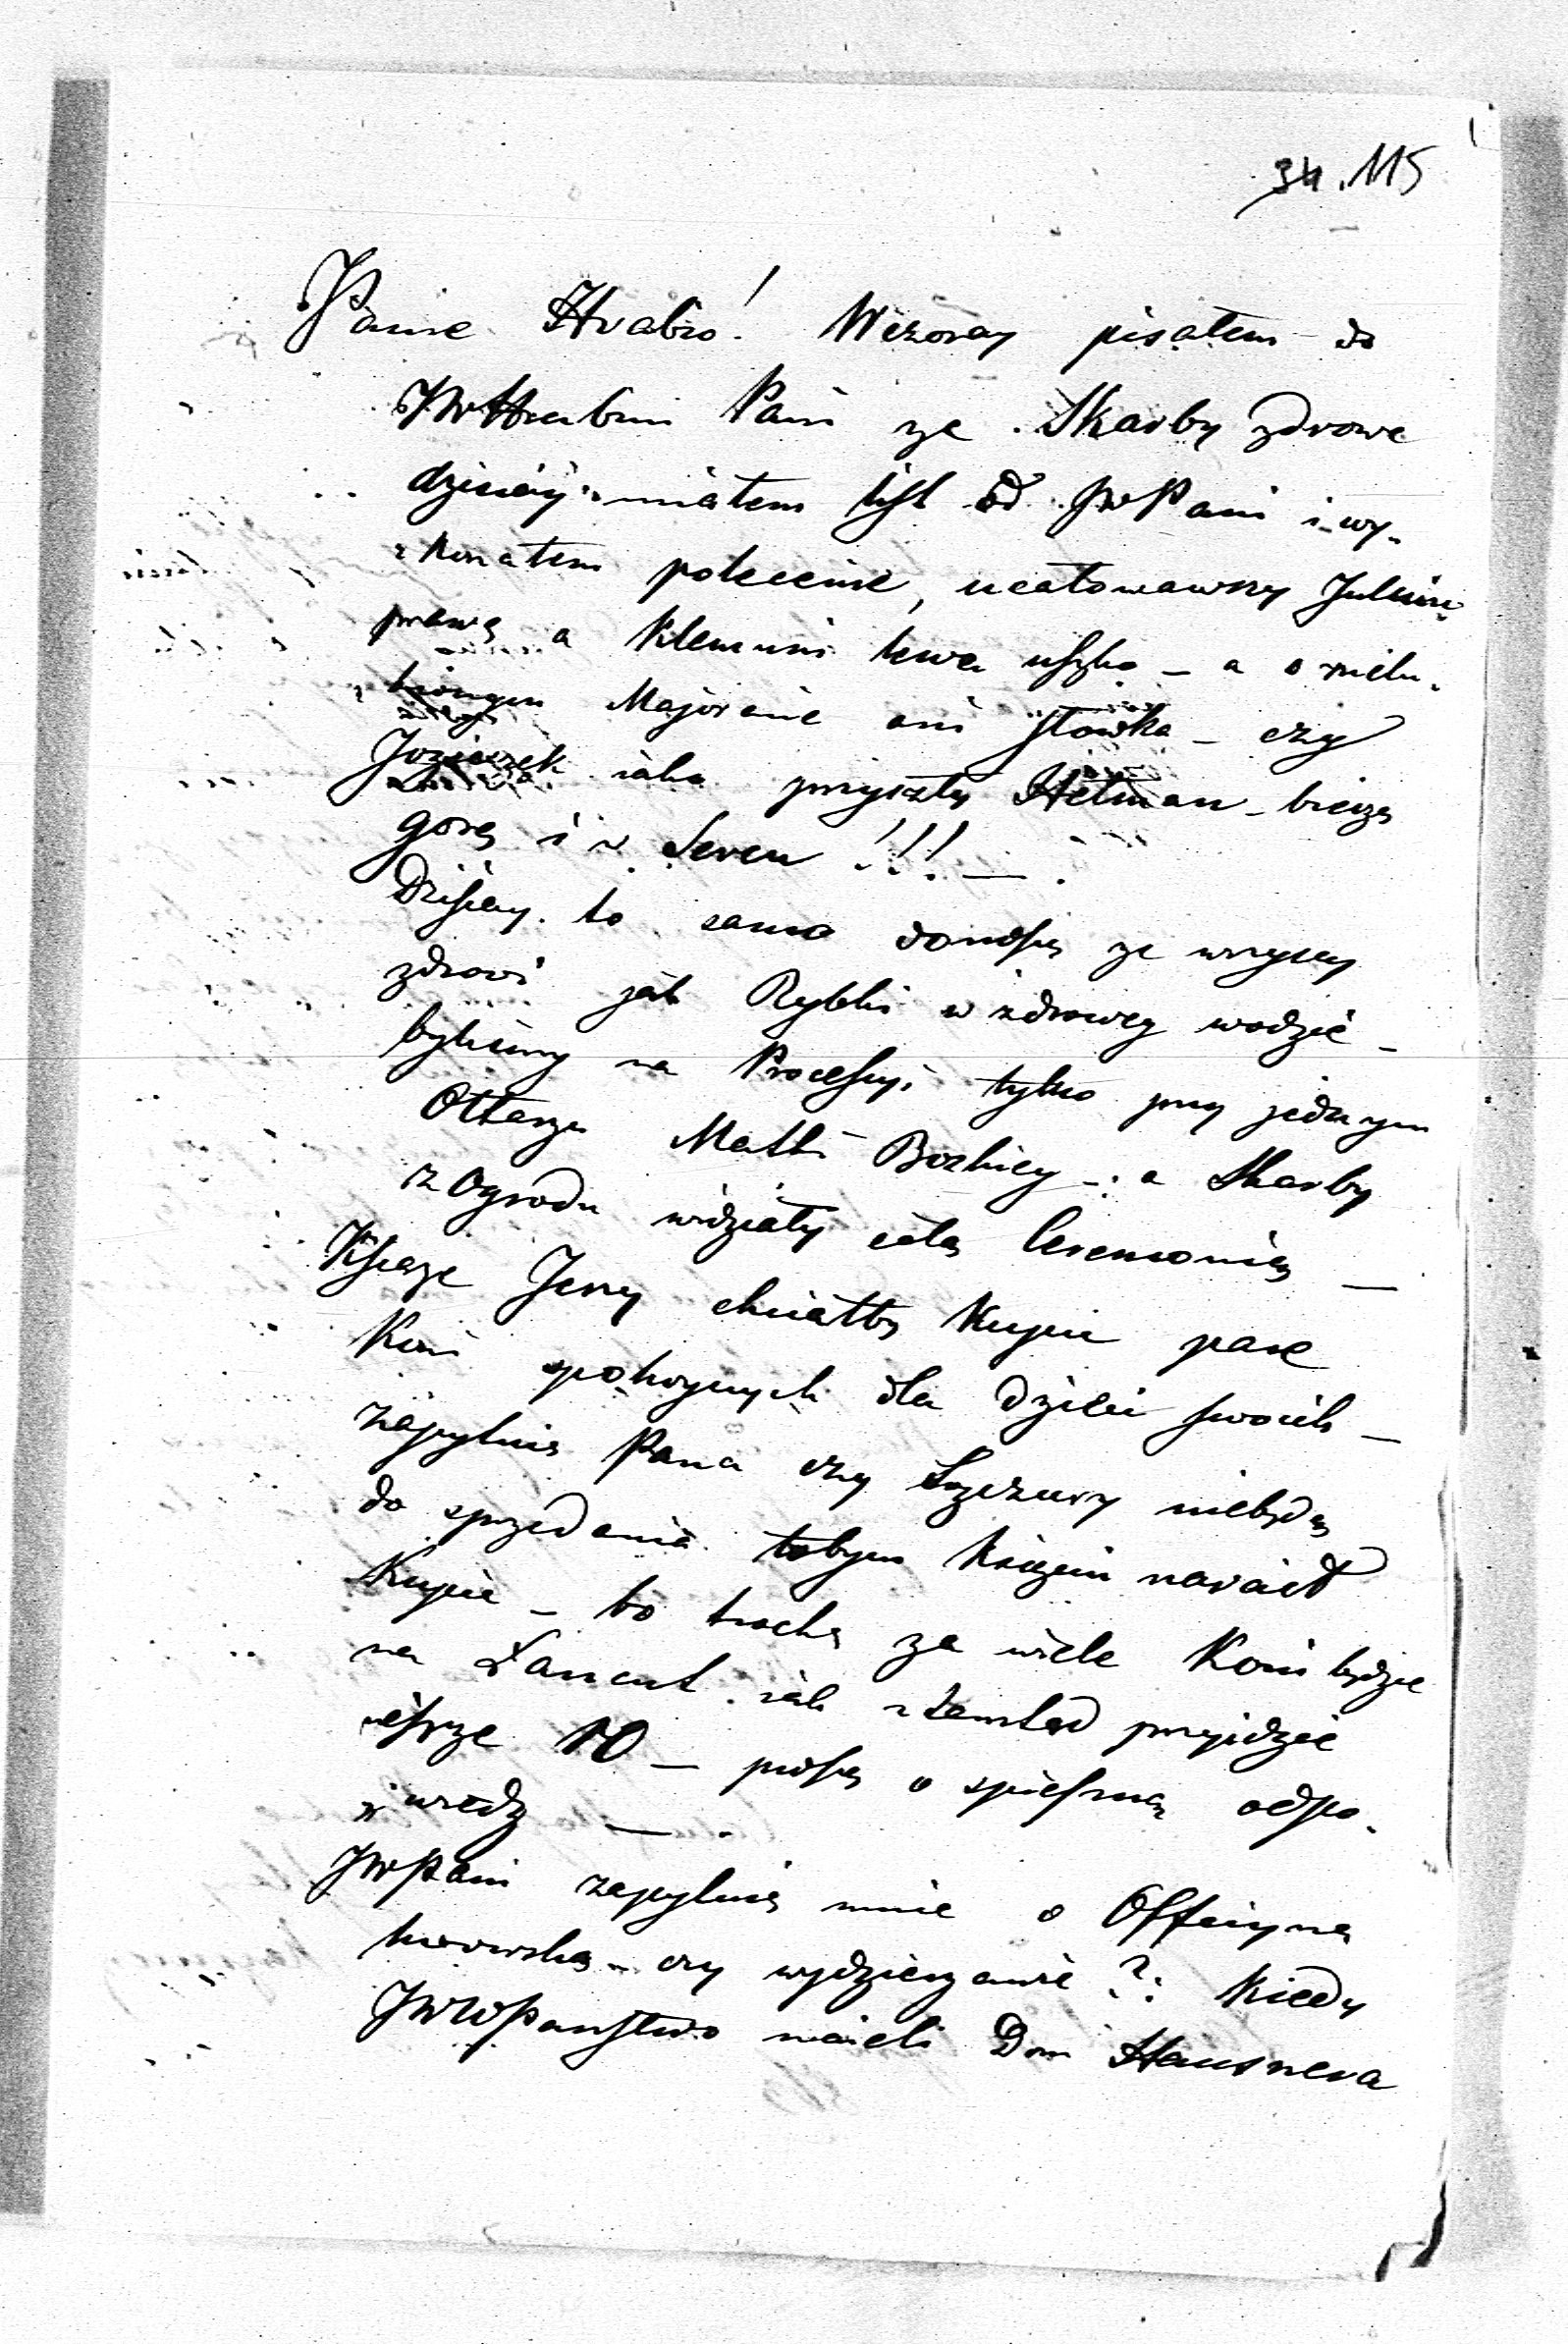 34. 115
Panie Hrabio! Wczoray pisałem do
JWHrabini Pani ze Skarby zdrowe
dzisiay miałem list od JWPani i wy-
konałem polecenie, ucałowawszy Julkini
prawe a Klemuni lewe uszko – a o wielu-
bionym Majoracie ani słowka – czy
Jozieczek iako przyszły Hetman – bierze
gorę i w Sercu!!! –
Dzisiay to samo donoszę ze wszyscy
zdrowi jak Rybki w zdrowey wodzie –
byliśmy na Processyi tylko przy jednym
Ołtarzu Matki Bozkiey – a Skarby
z Ogrodu widziały całą Ceremonię –
Xsiąze Jerzy chciałby kupić parę
Koni spokoynych dla dzieci swoich –
zapytuię Pana czy Szczury niebędą
do sprzedania tobym księciu naraił
Kupie – bo trochę za wiele Koni będzie
na Łancut iak ztamtąd przyidzie
ieszcze 10 – proszę o spieszną odpo-
wiedz –
JWPani zapytuie mnie o Officynę
lwowską – czy wydzierzawić?: Kiedy
JWWPanstwo mieli Dom Hausnera